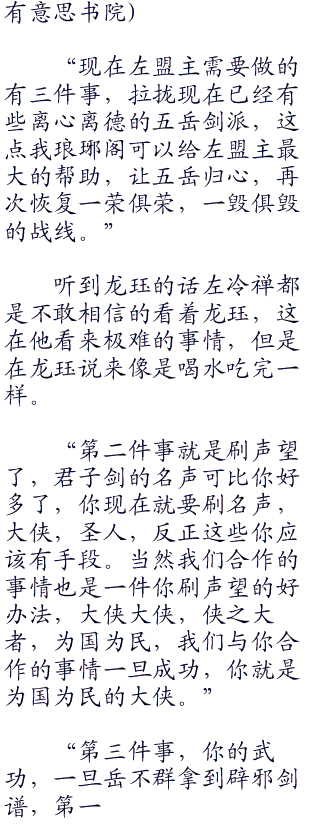 有意思书院）
“现在左盟主需要做的
有三件事，拉拢现在已经有
些离心离德的五岳剑派，这
点我琅琊阁可以给左盟主最
大的帮助，让五岳归心，再
次恢复一荣俱荣，一毁俱毁
的战线。”
听到龙珏的话左冷禅都
是不敢相信的看着龙珏，这
在他看来极难的事情，但是
在龙珏说来像是喝水吃完一
样。
“第二件事就是刷声望
了，君子剑的名声可比你好
多了，你现在就要刷名声，
大侠，圣人，反正这些你应
该有手段。当然我们合作的
事情也是一件你刷声望的好
办法，大侠大侠，侠之大
者，为国为民，我们与你合
作的事情一旦成功，你就是
为国为民的大侠。”
“第三件事，你的武
功，一旦岳不群拿到辟邪剑
谱，第一